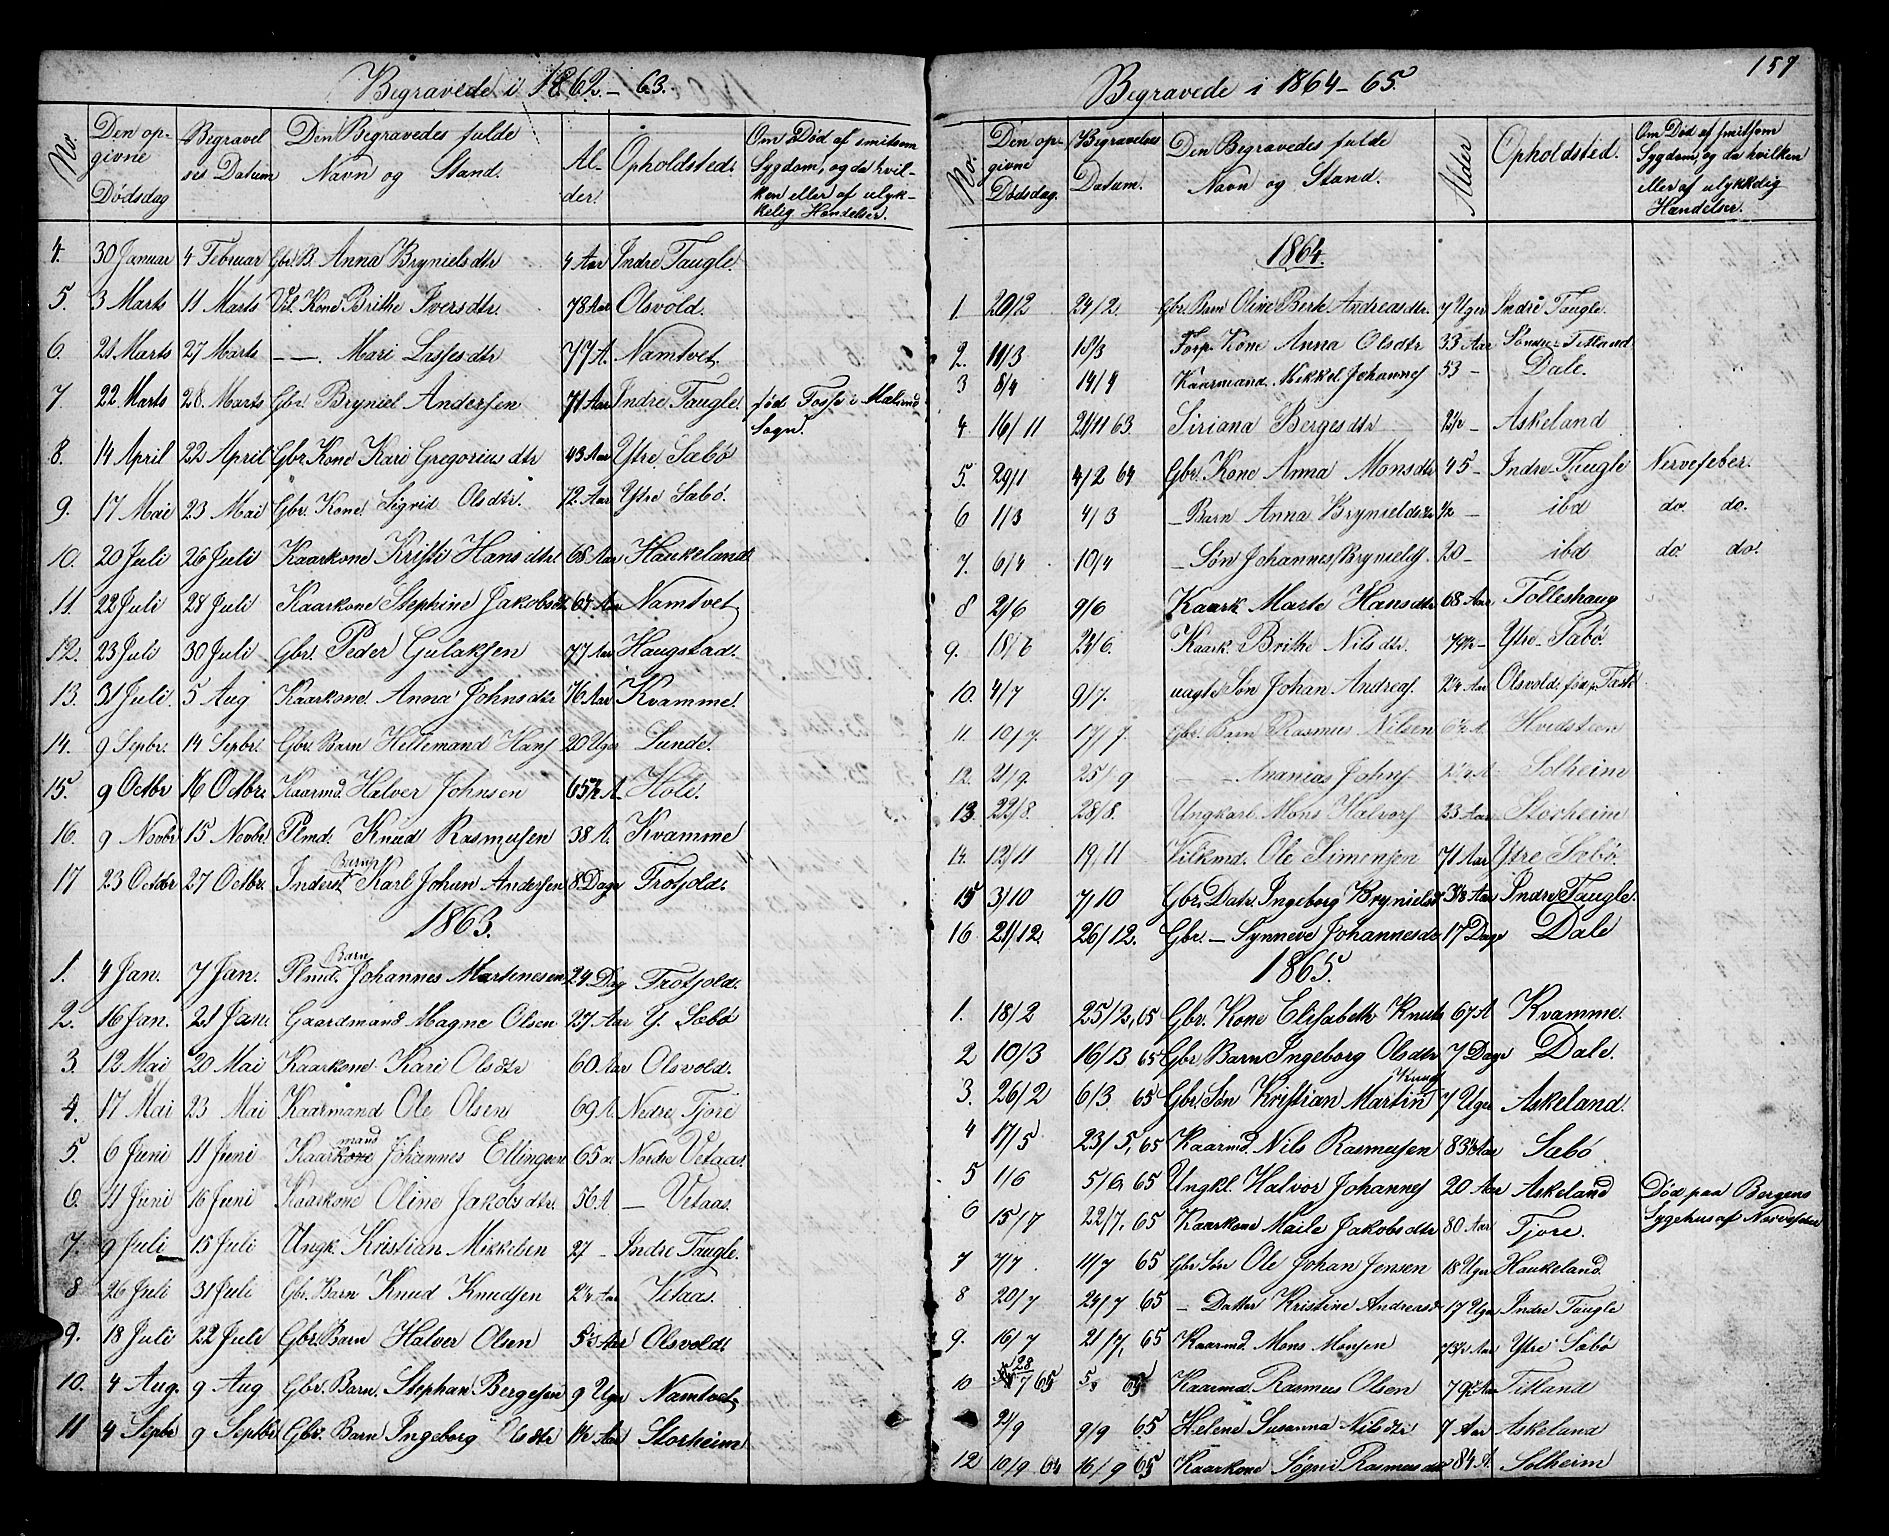 Begravede i 1862–63.
No. | Den opgivne Dødsdag | Begravelses Datum | Den Begravedes fulde Navn og Stand. | Alder. | Opholdsted. | Om Død af smitsom Sygdom, og da hvilken eller af ulykkelig Hændelser.
4. 30 Januar 4 Februar Gbr. B. Anna Brynielsdtr 4 Aar Indre Taugle.
5. 3 Marts 11 Marts Vil. Kone Brithe Iversdtr. 78 Aar Olsvold.
6. 21 Marts 27 Marts — Mari Lassesdtr 77 A. Namtvet
7 22 Marts 28 Marts Gbr. Bryniel Andersen 71 Aar Indre Taugle. født Fosse i
Sogn.
8. 14 April 22 April Gbr. Kone Kari Gregoriusdtr 43 Aar Ytre Sæbø
9. 17 Mai 23 Mai Gbr. Kone Sigrid Olsdtr. 72 Aar Ytre Sæbø.
10. 20 Juli 26 Juli Kaarkone Kristi Hansdtr. 68 Aar Haukeland.
11. 22 Juli 28 Juli Kaarkone Stephine Jakobsdtr 64 Aar Namtvet
12. 23 Juli 30 Juli Gbr. Peder Gulaksen 77 Aar Haugstad.
13. 31 Juli. 5 Aug Kaarkone Anna Johnsdtr 76 Aar Kvamme.
14. 9 Sepbr. 14 Sepbr. Gbr. Barn Hellemand Hans 20 Uger Lunde.
15. 9 Octbr 16 Octbr. Kaarmd. Halver Johnsen 65½ A. Hole.
16. 9 Novbr 15 Novbr. Plmd. Knud Rasmusen 38 A. Kvamme
17 23 Octbr 27 Octbr. Inderst. Barn Karl Johan Andersen 8 Dage Trotjold.
1863.
1. 4 Jan. 7 Jan. Plmd. Barn Johannes Martinesen 24 Dag Trotjold.
2. 16 Jan. 21 Jan. Gaardmand Magne Olsen 27 Aar Y. Sæbø
3. 12 Mai 20 Mai Kaarkone Kari Olsdtr 60 Aar Olsvold.
4. 17 Mai 23 Mai Kaarmand Ole Olsen 69 A. Nedre Tjore
5. 6 Juni 11 Juni Kaarkone mand Johannes Ellingsen 65 A Nordre Vetaas.
6. 11 Juni 16 Juni Kaarkone Oline Jakobsdtr. 56 A — Vetaas.
7. 9 Juli 15 Juli Ungk. Kristian Mikkelsen 27 – Indre Taugle.
8 26 Juli 31 Juli Gbr. Barn Knud Knudsen 2¼ Aar Vetaas.
9. 18 Juli 22 Juli Gbr. Barn Halver Olsen 5½ Aar Olsvold.
10. 4 Aug. 9 Aug Gbr. Barn. Stephan Bergesen 9 Uger Namtvet
11 4 Sepbr 9 Septbr. Gbr. Barn Ingeborg Olsdtr 1½ Aar Storheim
159
Begravede i 1864–65.
No. | Den opgivne Dødsdag. | Begravelses Datum. | Den Begravedes fulde Navn og Stand. | Alder | Opholdsted. | Om Død af smitsom Sygdom, og da hvilken eller af ulykkelig Hændelser.
1864.
1. 20/2 24/2. Gbr. Barn Oline Berte Andreasdtr. 7 Uger Indre Taugle.
2. 11/3 18/3 Forp. Kone Anna Olsdtr 33 Aar Søndre Titland
3 8/4 14/4 Kaarmand. Mikkel Johannes 53 – Dale.
4 16/11 21/11 63. Siriana Bergesdtr 2½ – Askeland
5. 29/1 4/2 64 Gbr. Kone Anna Monsdtr 45 – Indre Taugle Nervefeber.
6 1/3 4/3 – Barn Anna Brynieldstr ½ – ibd do. do.
7. 6/4 10/4 – Søn Johannes Bryniels. 20 – ibd do. do.
8 2/6 9/6 Kaark. Marte Hansdtr 68 Aar Tolleshaug
9. 18/6 24/6. Kaark. Brithe Nilsdtr. 79½ – Ytre Sæbø.
10. 4/7 9/7. uægte Søn Johan Andreas. 2¼ Aar Olsvold. født p.
11. 10/7. 17/7. Gbr. Barn Rasmus Nilsen 6½ A. Hvidsteen
12. 21/9. 25/9 – – Ananias Johns 2½ A. Solheim
13. 22/8. 28/8. Ungkarl Mons Halvors 23 Aar Storheim
14. 12/11 19/11 Vilkmd. Ole Simensen 71 Aar Ytre Sæbø.
15 3/10 7/10 Gbr. Datr. Ingeborg Brynielsd 3½ Aar Indre Taugle.
16 21/12. 26/12. Gbr. – Synneve Johannesdr 17 Dage Dale
1865.
1. 18/2 25/2, 65 Gbr. Kone Elisabeth Knuts 67 A Kvamme.
2 10/3 16/3 65 Gbr Barn Ingeborg Olsdtr 7 Dage Dale.
3. 26/2 6/3 65 Gbr. Søn Kristian Martin Knuds 7 Uger Askeland.
4 17/5 23/5, 65 Kaarmd. Nils Rasmusen 83½ Aar Sæbø
5 1/6 5/6, 65 Ungkl. Halvor Johannes 20 Aar Askeland Død paa Bergens
Sygehus af Nervefeber
6 15/7 22/7, 65 Kaarkone Maile Jakobsdtr 80 Aar Tjore.
7 7/7. 11/7 65 Gbr Søn Ole Johan Jensen 18 Uger Haukeland.
8 20/7 24/7 65 – Datter Kristine Andersd 17 Uger Indre Taugle
9. 16/7 21/7, 65 Kaarmd. Mons Monsen 73½ Aar Ytre Sæbø
10 28/7 65 5 65 Kaarmd. Rasmus Olsen 79 Aar Titland
2/9 9/9 65 Helene Susanna Nilsdtr 7 Aar Askeland
12 10/9 64 16/9 65 Kaarkone Søgni Rasmusdtr 84 A. Solheim